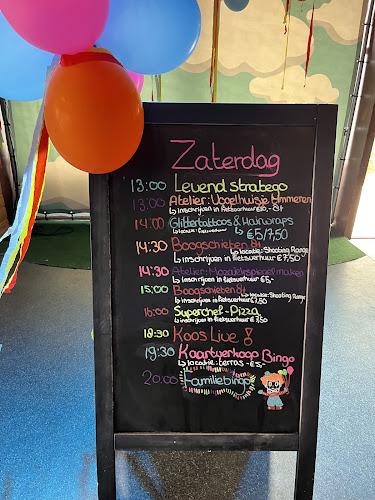 Zaterdag
13:00 Levend stratego
13:00 Atelier: Vogelhuisje timmeren
↳ inschrijven in fietsverhuur
14:00 Glittertattoos & Hairwraps
↳ €5/7,50
14:30 Boogschieten 8+
↳ locatie: Shooting Range
↳ inschrijven in fietsverhuur €7,50
14:30 Atelier: Mozaïekspiegel maken
↳ inschrijven in fietsverhuur €5,-
15:00 Boogschieten 8+
↳ locatie: Shooting Range
↳ inschrijven in fietsverhuur €7,50
16:00 Superchef-Pizza
↳ inschrijven in fietsverhuur €7,50
18:30 Koos Live!
19:30 Kaartverkoop Bingo
↳ locatie: terras - €5,-
20:00 Familiebingo